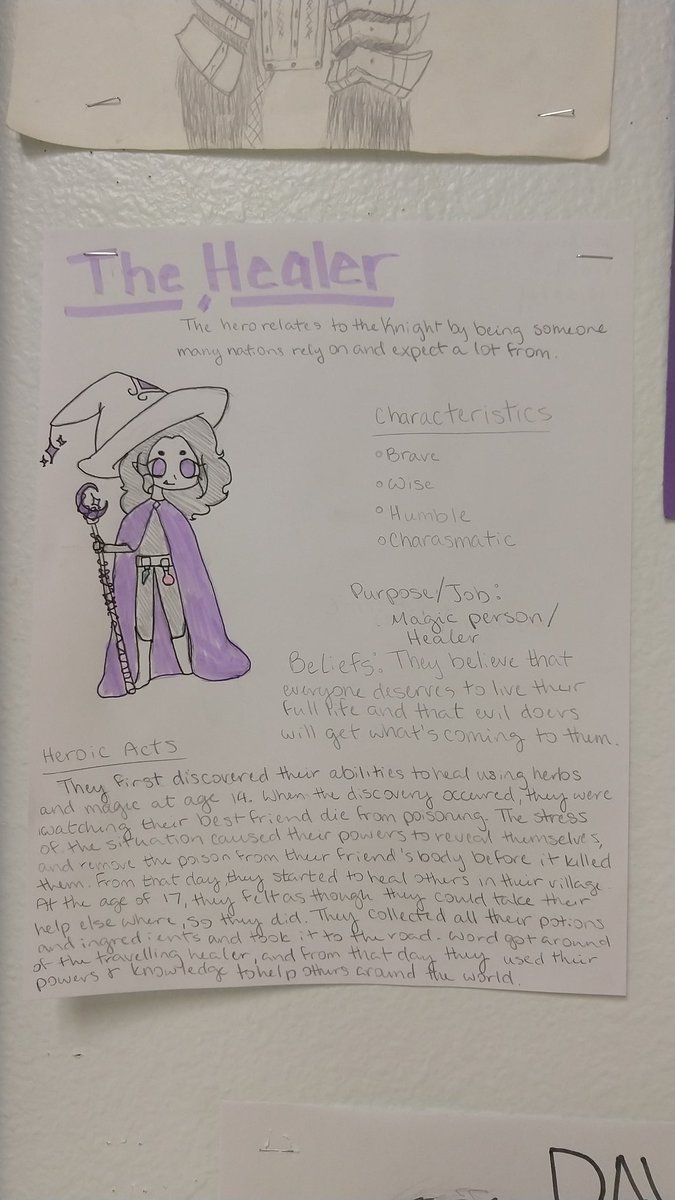 The Healer
The hero relates to the Knight by being someone
many nations rely on and expect a lot from.
Characteristics
Brave
Wise
Humble
Charasmatic
Purpose/Job:
Magic person/
Healer
Beliefs: They believe that
everyone deserves to live their
full life and that evil doers
will get what's coming to them.
Heroic Acts
They first discovered their abilities to heal using herbs
and magic at age 14. When the discovery occured, they were
watching their best friend die from poisoning. The stress
of the situation caused their powers to reveal themselves,
and remove the poison from their friend's body before it killed
them. From that day, they started to heal others in their village.
At the age of 17, they felt as though they could take their
help else where, so they did. They collected all their potions
and ingredients and took it to the road. Word got around
of the travelling healer, and from that day they used their
powers & knowledge to help others around the world.